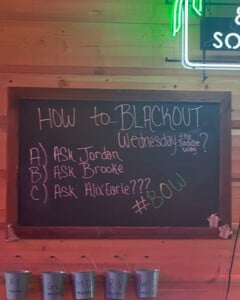 &
SO
HOW to BLACKOUT
Wednesday the saddle way?
A) ASK Jordan
B) ASK Brooke
C) ASK Alix Earle???
#BOW